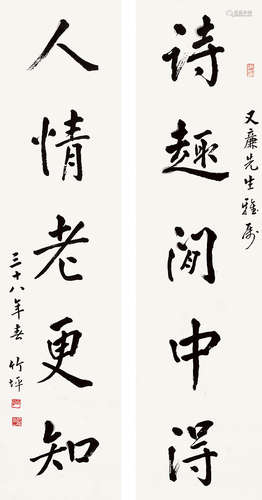 诗趣閒中得
又廉先生雅属
人情老更知
三十八年春 竹坪